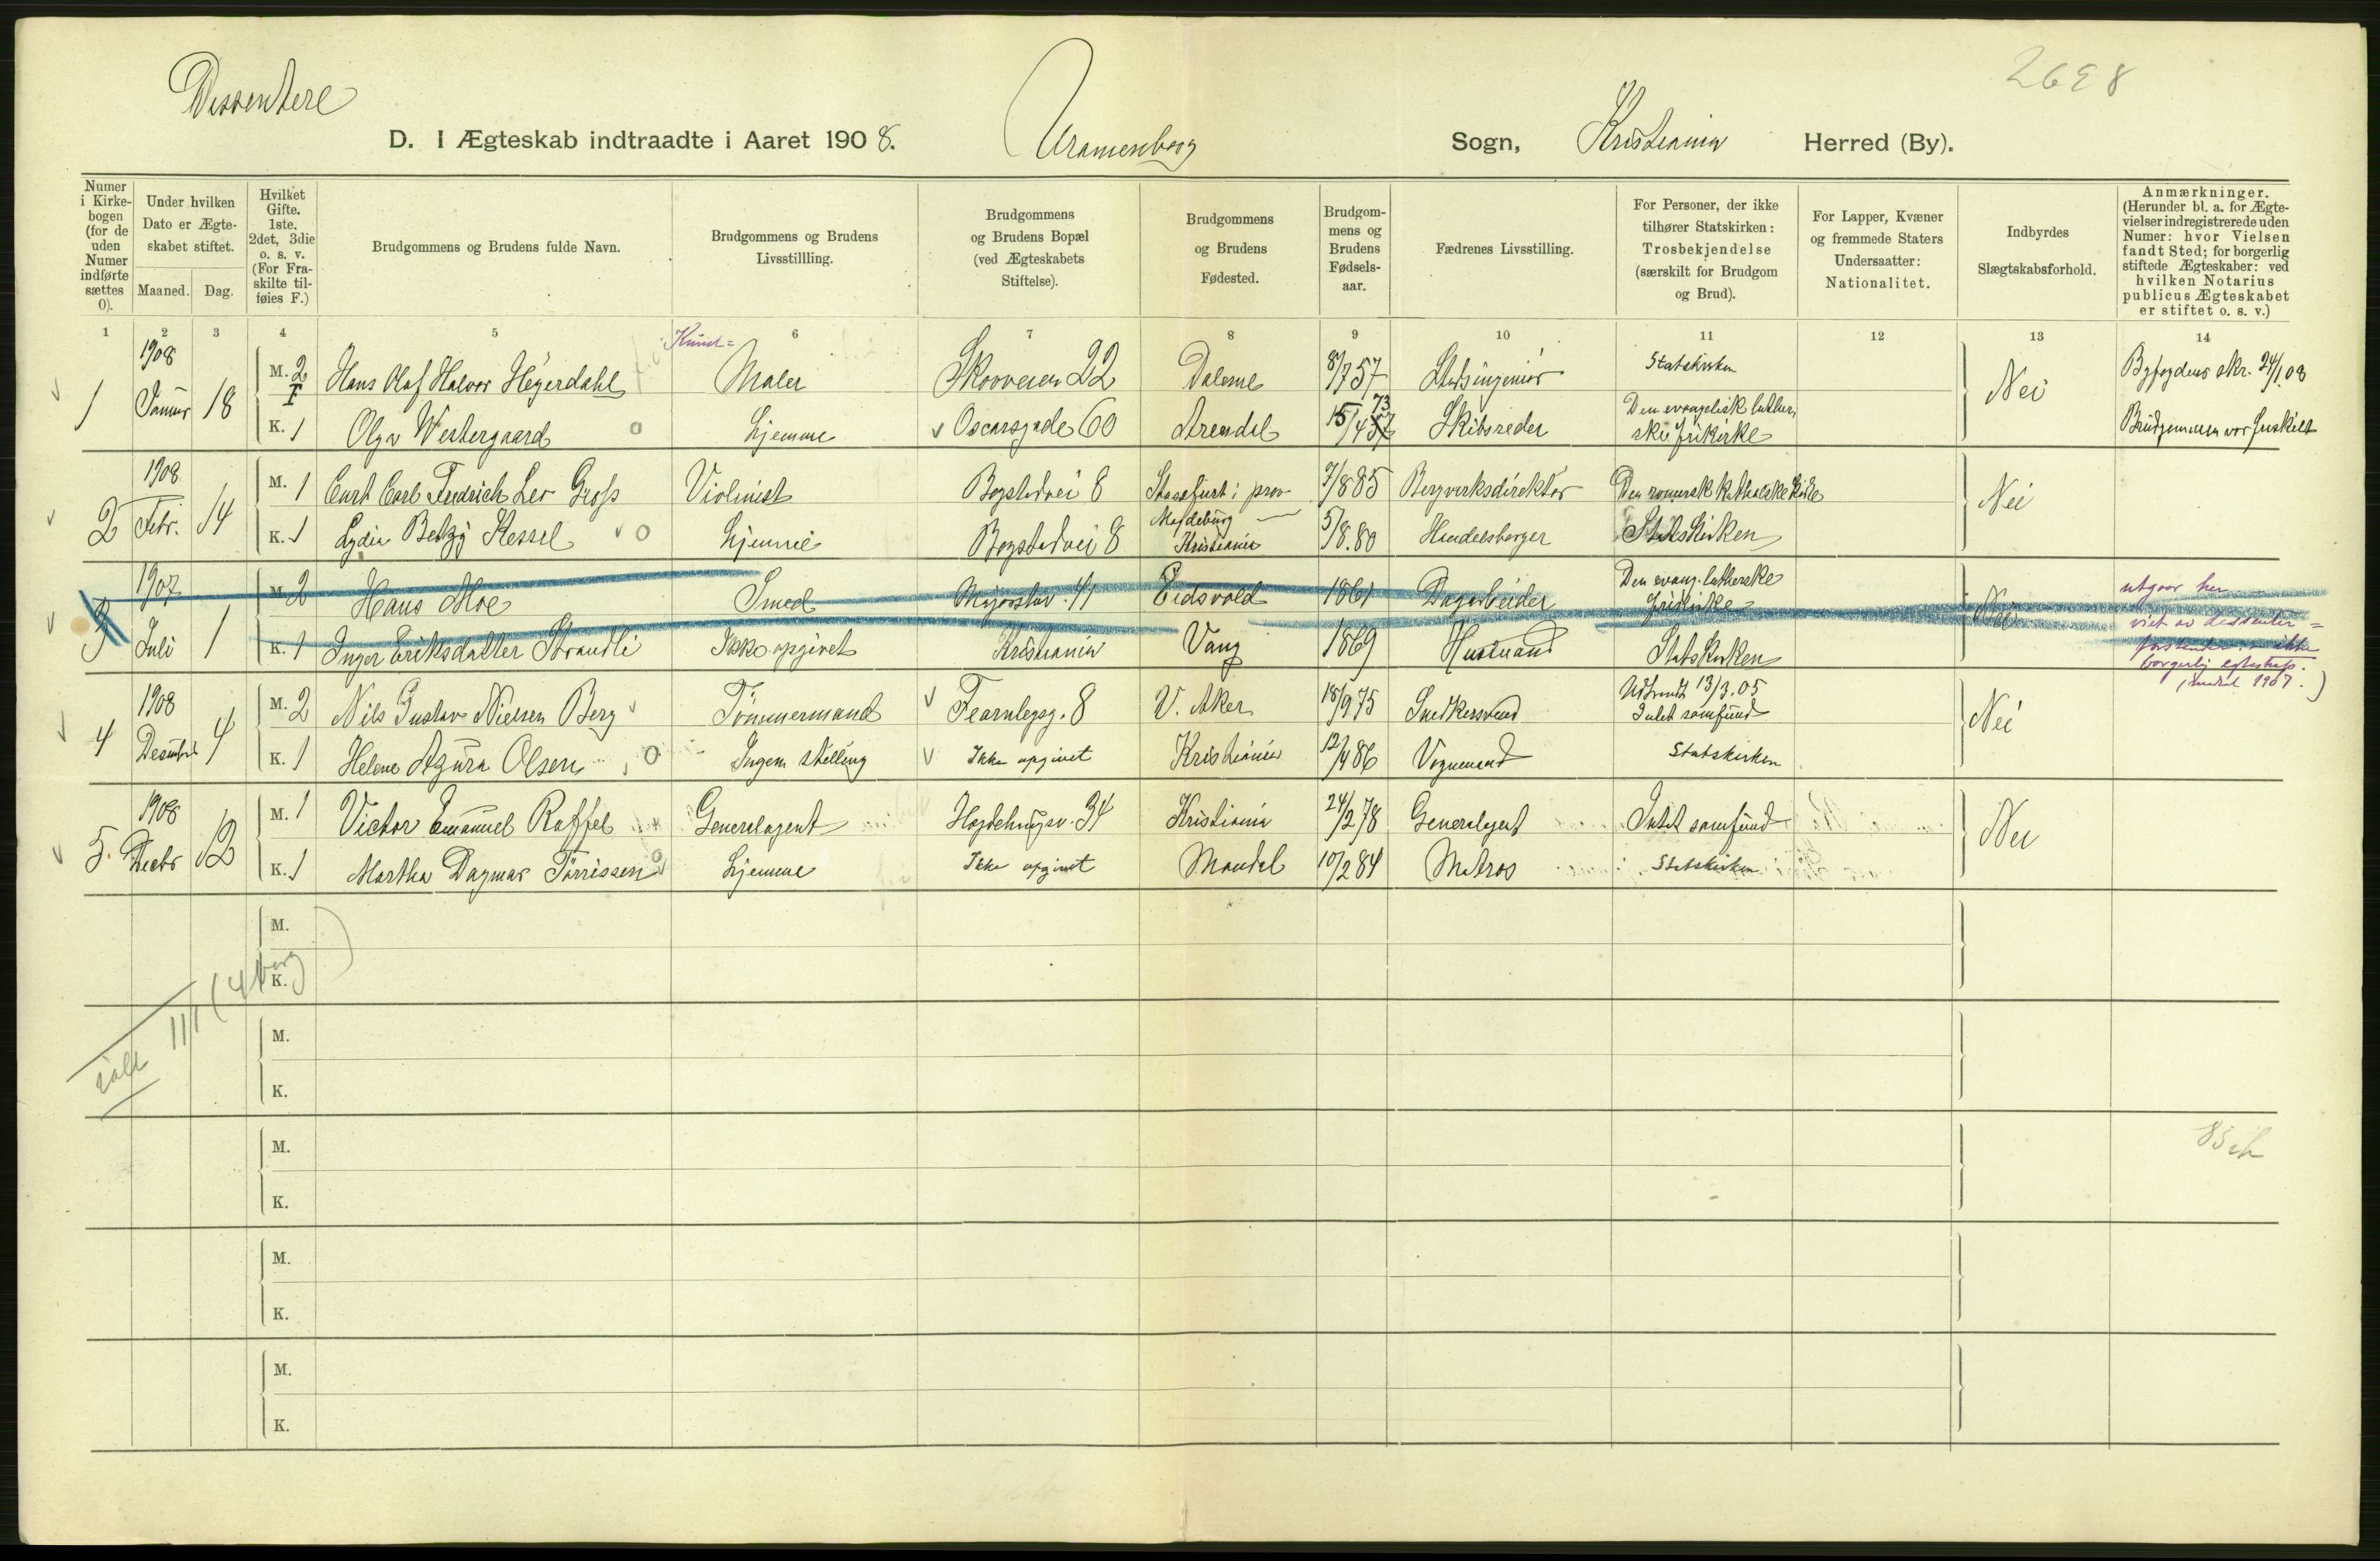 2698
Dissentere
D. I Ægteskab indtraadte i Aaret 1908. Uranienborg Sogn, Kristiania Herred (By).
Numer i Kirkebogen (for de uden Numer indførte sættes 0).
Under hvilken Dato er Ægteskabet stiftet.
Maaned. Dag.
Hvilket Gifte. 1ste, 2det, 3die o. s. v. (For Fraskilte tilføies F.)
Brudgommens og Brudens fulde Navn.
Brudgommens og Brudens Livsstillling.
Brudgommens og Brudens Bopæl (ved Ægteskabets Stiftelse).
Brudgommens og Brudens Fødested.
Brudgommens og Brudens Fødselsaar.
Fædrenes Livsstilling.
For Personer, der ikke tilhører Statskirken: Trosbekjendelse (særskilt for Brudgom og Brud).
For Lapper, Kvæner og fremmede Staters Undersaatter: Nationalitet.
Indbyrdes Slægtskabsforhold.
Anmærkninger. (Herunder bl. a. for Ægtevielser indregistrerede uden Numer: hvor Vielsen fandt Sted; for borgerlig stiftede Ægteskaber: ved hvilken Notarius publicus Ægteskabet er stiftet o. s. v.)
1 2 3 4 5 6 7 8 9 10 11 12 13 14
1 1908 Januar 18 M. 2 F Hans Olaf Halvor Heyerdahl Kunst= Maler Skovveien 22 Dalerne 8/7 57 Statsingeniör Statskirken Nei Byfogdens skr. 24/1.08
K. 1 Olga Westergaard o Hjemme Oscarsgade 60 Arendal 15/4 73 Skibsreder Den evangelisk lutherske frikirke Brudgommen var fraskilt
2 1908 Febr. 14 M. 1 Curt Carl Fredrich Leo Gross Violinist Bogstadvei 8 Stassfurt i prov Magdeburg 7/8 85 Bergverksdirektör Den romersk katholske kirke Nei
K. 1 Lydia Betzy Kessel o Hjemme Bogstadvei 8 Kristiania 5/8.80 Handelsborger Statskirken
3 1907 Juli 1 M. 2 Hans Moe Smed Majorstuv. 41 Eidsvold 1861 Dagarbeider Den evang. lutherske frikirke Nei utgaar her
K. 1 Inger Eriksdatter Strandli Ikke opgivet Kristiania Vang 1869 Husmand Statskirken viet av dissenter= forstander ikke borgerlig egteskap. 1907.)
4 1908 Desember 4 M. 2 Nils Gustav Nielsen Berg Tömmermand Fearnleysg. 8 V. Aker 18/9 75 Snedkersvend Udtraadt 13/3.05 Intet samfund Nei
K. 1 Helene Azüra Olsen o Ingen stelling Ikke opgivet Kristiania 12/4 86 Vognmand Statskirken
5. 1908 Decbr 12 M. 1 Victor Emanuel Raffel Generalagent Hegdehaugsv. 34 Kristiania 24/2 78 Generalagent Intet samfund Nei
K. 1 Martha Dagmar Törrissen o Hjemme Ikke opgivet Mandal 10/2 84 Matros Statskirken
M.
K.
M.
K.
M.
K.
M.
K.
M.
K.